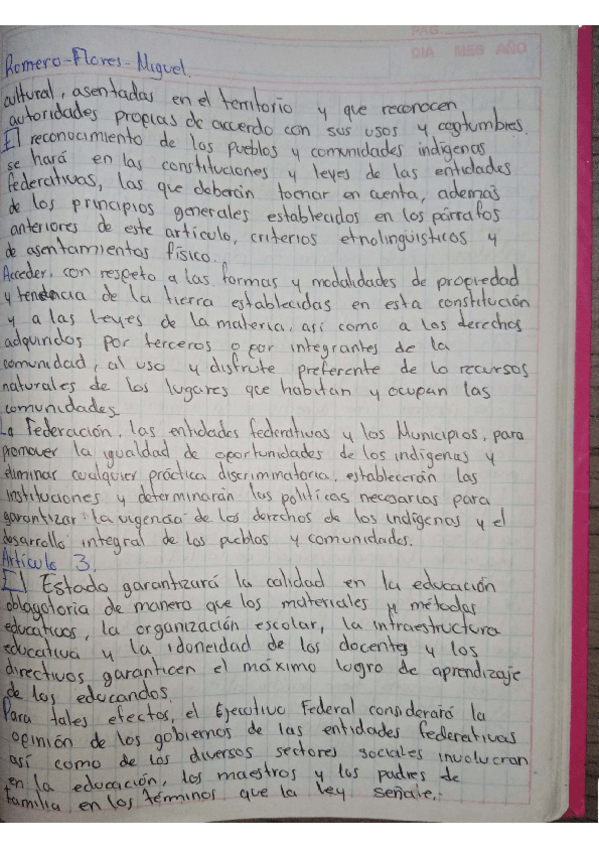 PAG.
DIA MES AÑO
Romero-Flores-Miguel.
cultural, asentadas en el territorio y que reconocen
autoridades propias de acuerdo con sus usos y costumbres.
El reconocimiento de los pueblos y comunidades indígenas
se hará en las constituciones y leyes de las entidades
federativas, las que deberán tomar en cuenta, además
de los principios generales establecidos en los párrafos
anteriores de este artículo, criterios etnolingüísticos y
de asentamientos físico.
Acceder, con respeto a las formas y modalidades de propiedad
y tendencia de la tierra establecidas en esta constitución
y a las leyes de la materia, así como a los derechos
adquiridos por terceros o por integrantes de la
comunidad, al uso y disfrute preferente de lo recursos
naturales de los lugares que habitan y ocupan las
comunidades.
La Federación, las entidades federativas y los Municipios, para
promover la igualdad de oportunidades de los indígenas y
eliminar cualquier práctica discriminatoria, establecerán las
instituciones y determinarán las políticas necesarias para
garantizar la vigencia de los derechos de los indígenas y el
desarrollo integral de los pueblos y comunidades.
Artículo 3.
El Estado garantizará la calidad en la educación
oblagatoria de manera que los materiales y métodos
educativos, la organización escolar, la intraestructura
educativa y la idoneidad de los docentes y los
directivos garanticen el máximo logro de aprendizaje
de los educandos.
Para tales efectos, el Ejecutivo Federal considerará la
opinión de los gobiernos de las entidades federativas
así como de los diversos sectores sociales involucran
en la educación, los maestros y los padres de
familia en los términos que la ley señale.